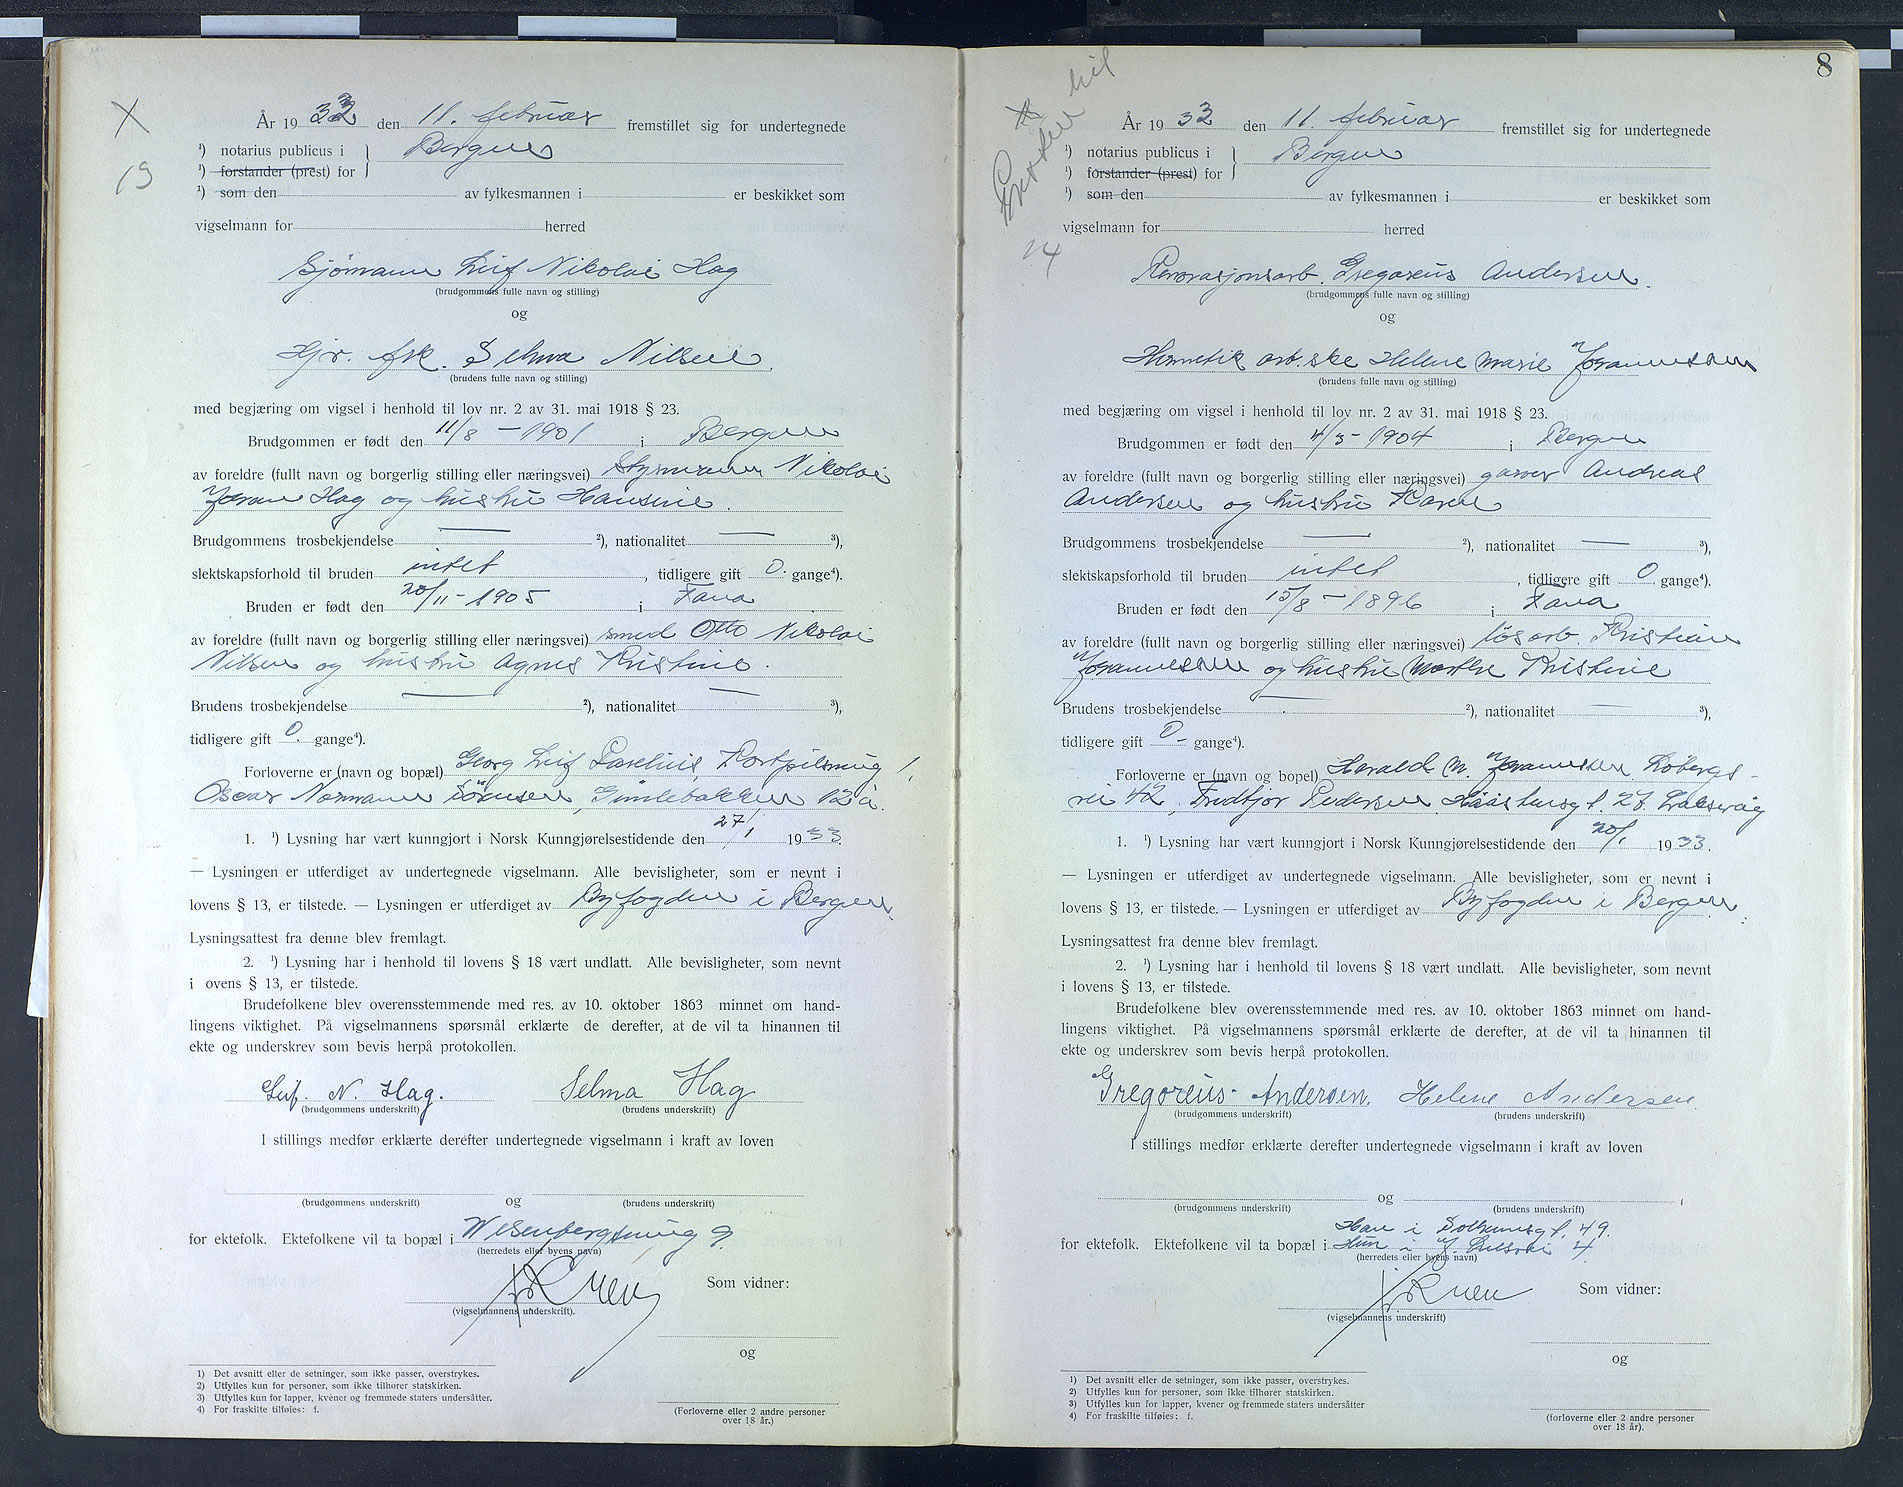 X
År 1933 den 11. februar fremstillet sig for undertegnede
¹) notarius publicus i } Bergen
¹) forstander (prest) for
13
¹) som den av fylkesmannen i er beskikket som
vigselmann for herred
Sjømann Leif Nikolai Hag
(brudgommens fulle navn og stilling)
og
Hjv. frk. Selma Nilsen.
(brudens fulle navn og stilling)
med begjæring om vigsel i henhold til lov nr. 2 av 31. mai 1918 § 23.
Brudgommen er født den 11/8 – 1901 i Bergen
av foreldre (fullt navn og borgerlig stilling eller næringsvei) Styrmann Nikolai
Johan Hag og hustru Hansine.
Brudgommens trosbekjendelse — ²), nationalitet — ³),
slektskapsforhold til bruden intet, tidligere gift 0. gange⁴).
Bruden er født den 20/11 – 1905 i Fana
av foreldre (fullt navn og borgerlig stilling eller næringsvei) smed Otto Nikolai
Nilsen og hustru Agnes Kristine.
Brudens trosbekjendelse — ²), nationalitet — ³),
tidligere gift 0. gange⁴).
Forloverne er (navn og bopæl) Georg Leif 1,
Oscar Normann Sörensen, Gimlebakken 12 a.
1. ¹) Lysning har vært kunngjort i Norsk Kunngjørelsestidende den 27/1 1933.
— Lysningen er utferdiget av undertegnede vigselmann. Alle bevisligheter, som er nevnt i
lovens § 13, er tilstede. — Lysningen er utferdiget av Byfogden i Bergen.
Lysningsattest fra denne blev fremlagt.
2. ¹) Lysning har i henhold til lovens § 18 vært undlatt. Alle bevisligheter, som nevnt
i ovens § 13, er tilstede.
Brudefolkene blev overensstemmende med res. av 10. oktober 1863 minnet om hand-
lingens viktighet. På vigselmannens spørsmål erklærte de derefter, at de vil ta hinannen til
ekte og underskrev som bevis herpå protokollen.
Leif. N. Hag. Selma Hag
(brudgommens underskrift) (brudens underskrift)
I stillings medfør erklærte derefter undertegnede vigselmann i kraft av loven
og
(brudgommens underskrift) (brudens underskrift)
for ektefolk. Ektefolkene vil ta bopæl i Wesenbergsmug 9.
(herredets eller byens navn)
Som vidner:
(vigselmannens underskrift).
og
1) Det avsnitt eller de setninger, som ikke passer, overstrykes.
2) Utfylles kun for personer, som ikke tilhører statskirken.
3) Utfylles kun for lapper, kvener og fremmede staters undersåtter.
4) For fraskilte tilføies: f.
(Forloverne eller 2 andre personer
over 18 år.)
8
År 1933 den 11. februar fremstillet sig for undertegnede
¹) notarius publicus i } Bergen
¹) forstander (prest) for
¹) som den av fylkesmannen i er beskikket som
vigselmann for herred
14
Gregoreus Andersen.
(brudgommens fulle navn og stilling)
og
Hermetik arb.ske Helene Marie Johannessen
(brudens fulle navn og stilling)
med begjæring om vigsel i henhold til lov nr. 2 av 31. mai 1918 § 23.
Brudgommen er født den 4/3 – 1904 i Bergen
av foreldre (fullt navn og borgerlig stilling eller næringsvei) garver Andreas
Andersen og hustru Karen
Brudgommens trosbekjendelse — ²), nationalitet — ³),
slektskapsforhold til bruden intet, tidligere gift 0 gange⁴).
Bruden er født den 15/8 – 1896 i Fana
av foreldre (fullt navn og borgerlig stilling eller næringsvei) løsarb. Kristian
Johannessen og hustru Marthe Kristine
Brudens trosbekjendelse — ²), nationalitet — ³),
tidligere gift 0 – gange⁴).
Forloverne er (navn og bopel) Harald M. Johannessen, Løbergs-
vei 42, Fridtjof Pedersen, 27. Laksevåg
1. ¹) Lysning har vært kunngjort i Norsk Kunngjørelsestidende den 20/1 1933.
— Lysningen er utferdiget av undertegnede vigselmann. Alle bevisligheter, som er nevnt i
lovens § 13, er tilstede. — Lysningen er utferdiget av Byfogden i Bergen.
Lysningsattest fra denne blev fremlagt.
2. ¹) Lysning har i henhold til lovens § 18 vært undlatt. Alle bevisligheter, som nevnt
i lovens § 13, er tilstede.
Brudefolkene blev overensstemmende med res. av 10. oktober 1863 minnet om hand-
lingens viktighet. På vigselmannens spørsmål erklærte de derefter, at de vil ta hinannen til
ekte og underskrev som bevis herpå protokollen.
Gregoreus Andersen. Helene Andersen.
(brudgommens underskrift) (brudens underskrift)
I stillings medfør erklærte derefter undertegnede vigselmann i kraft av loven
og
(brudgommens underskrift) (brudens underskrift)
Han i Solheimsgt. 49.
for ektefolk. Ektefolkene vil ta bopæl i Hun i 4
(herredets eller byens navn)
Som vidner:
(vigselmannens underskrift)
og
1) Det avsnitt eller de setninger, som ikke passer, overstrykes.
2) Utfylles kun for personer, som ikke tilhører statskirken.
3) Utfylles kun for lapper, kvener og fremmede staters undersåtter
4) For fraskilte tilføies: f.
(forloverne eller 2 andre personer
over 18 år).